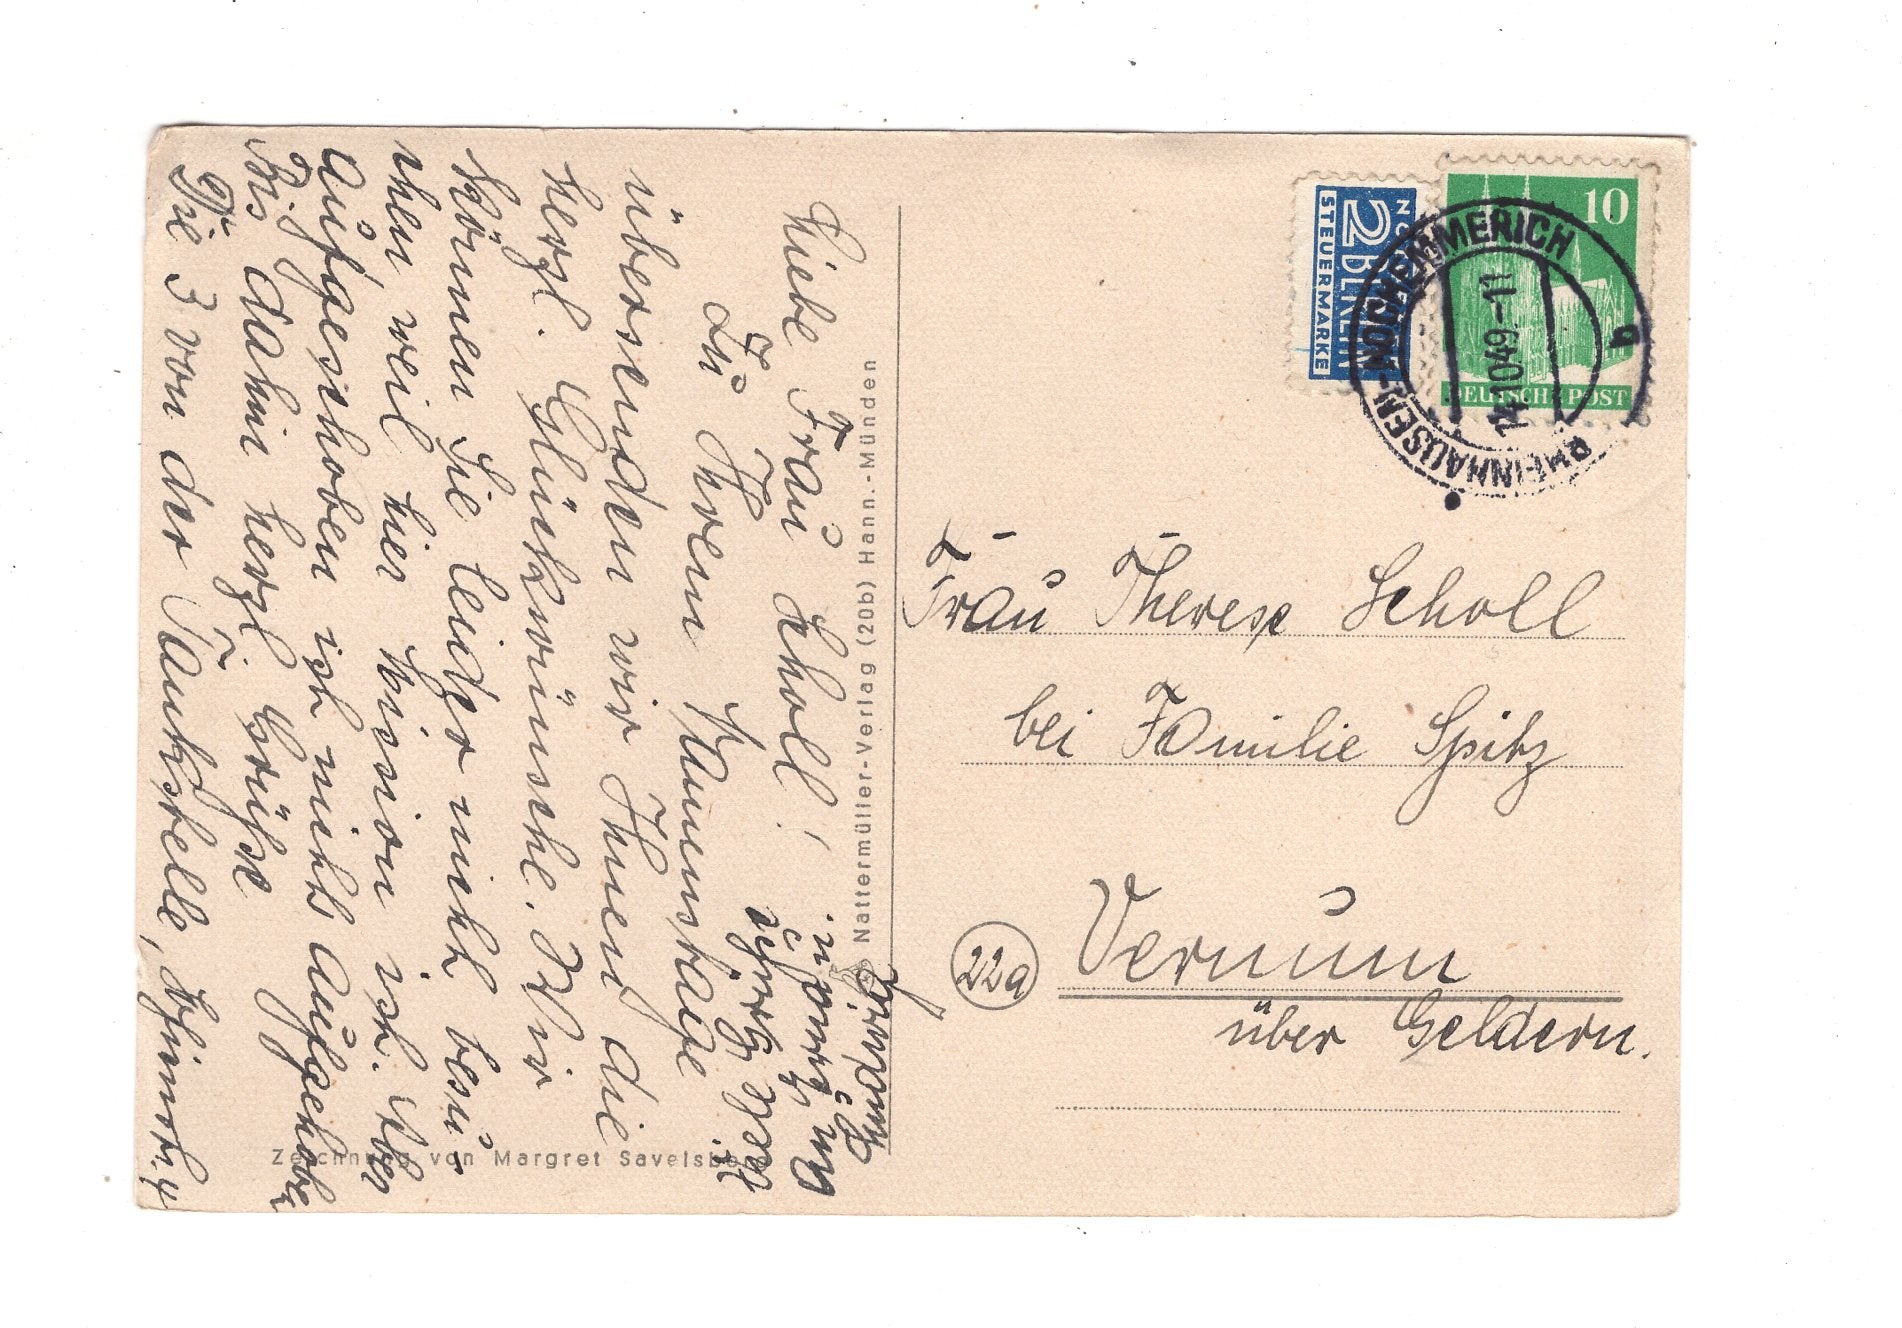 Liebe Frau Scholl!
Zu Ihrem Namenstage
übersenden wir Ihnen die
herzl. Glückwünsche. Wir
können Sie leider nicht besu-
chen, weil hier Mission ist. Aber
aufgeschoben ist nicht aufgehoben
Bis dahin herzl. Grüße
Die 3 von der Tankstelle,
Nattermüller-Verlag (20b) Hann.-Münden
Zeichnung von Margret Savelsberg
NOTOPFER
2 BERLIN
STEUERMARKE
10
DEUTSCHE POST
RHEINHAUSEN-HOCHEMMERICH
10 49.-11
b
Frau Therese Scholl
bei Familie Spitz
22a
Vernum
über Geldern.